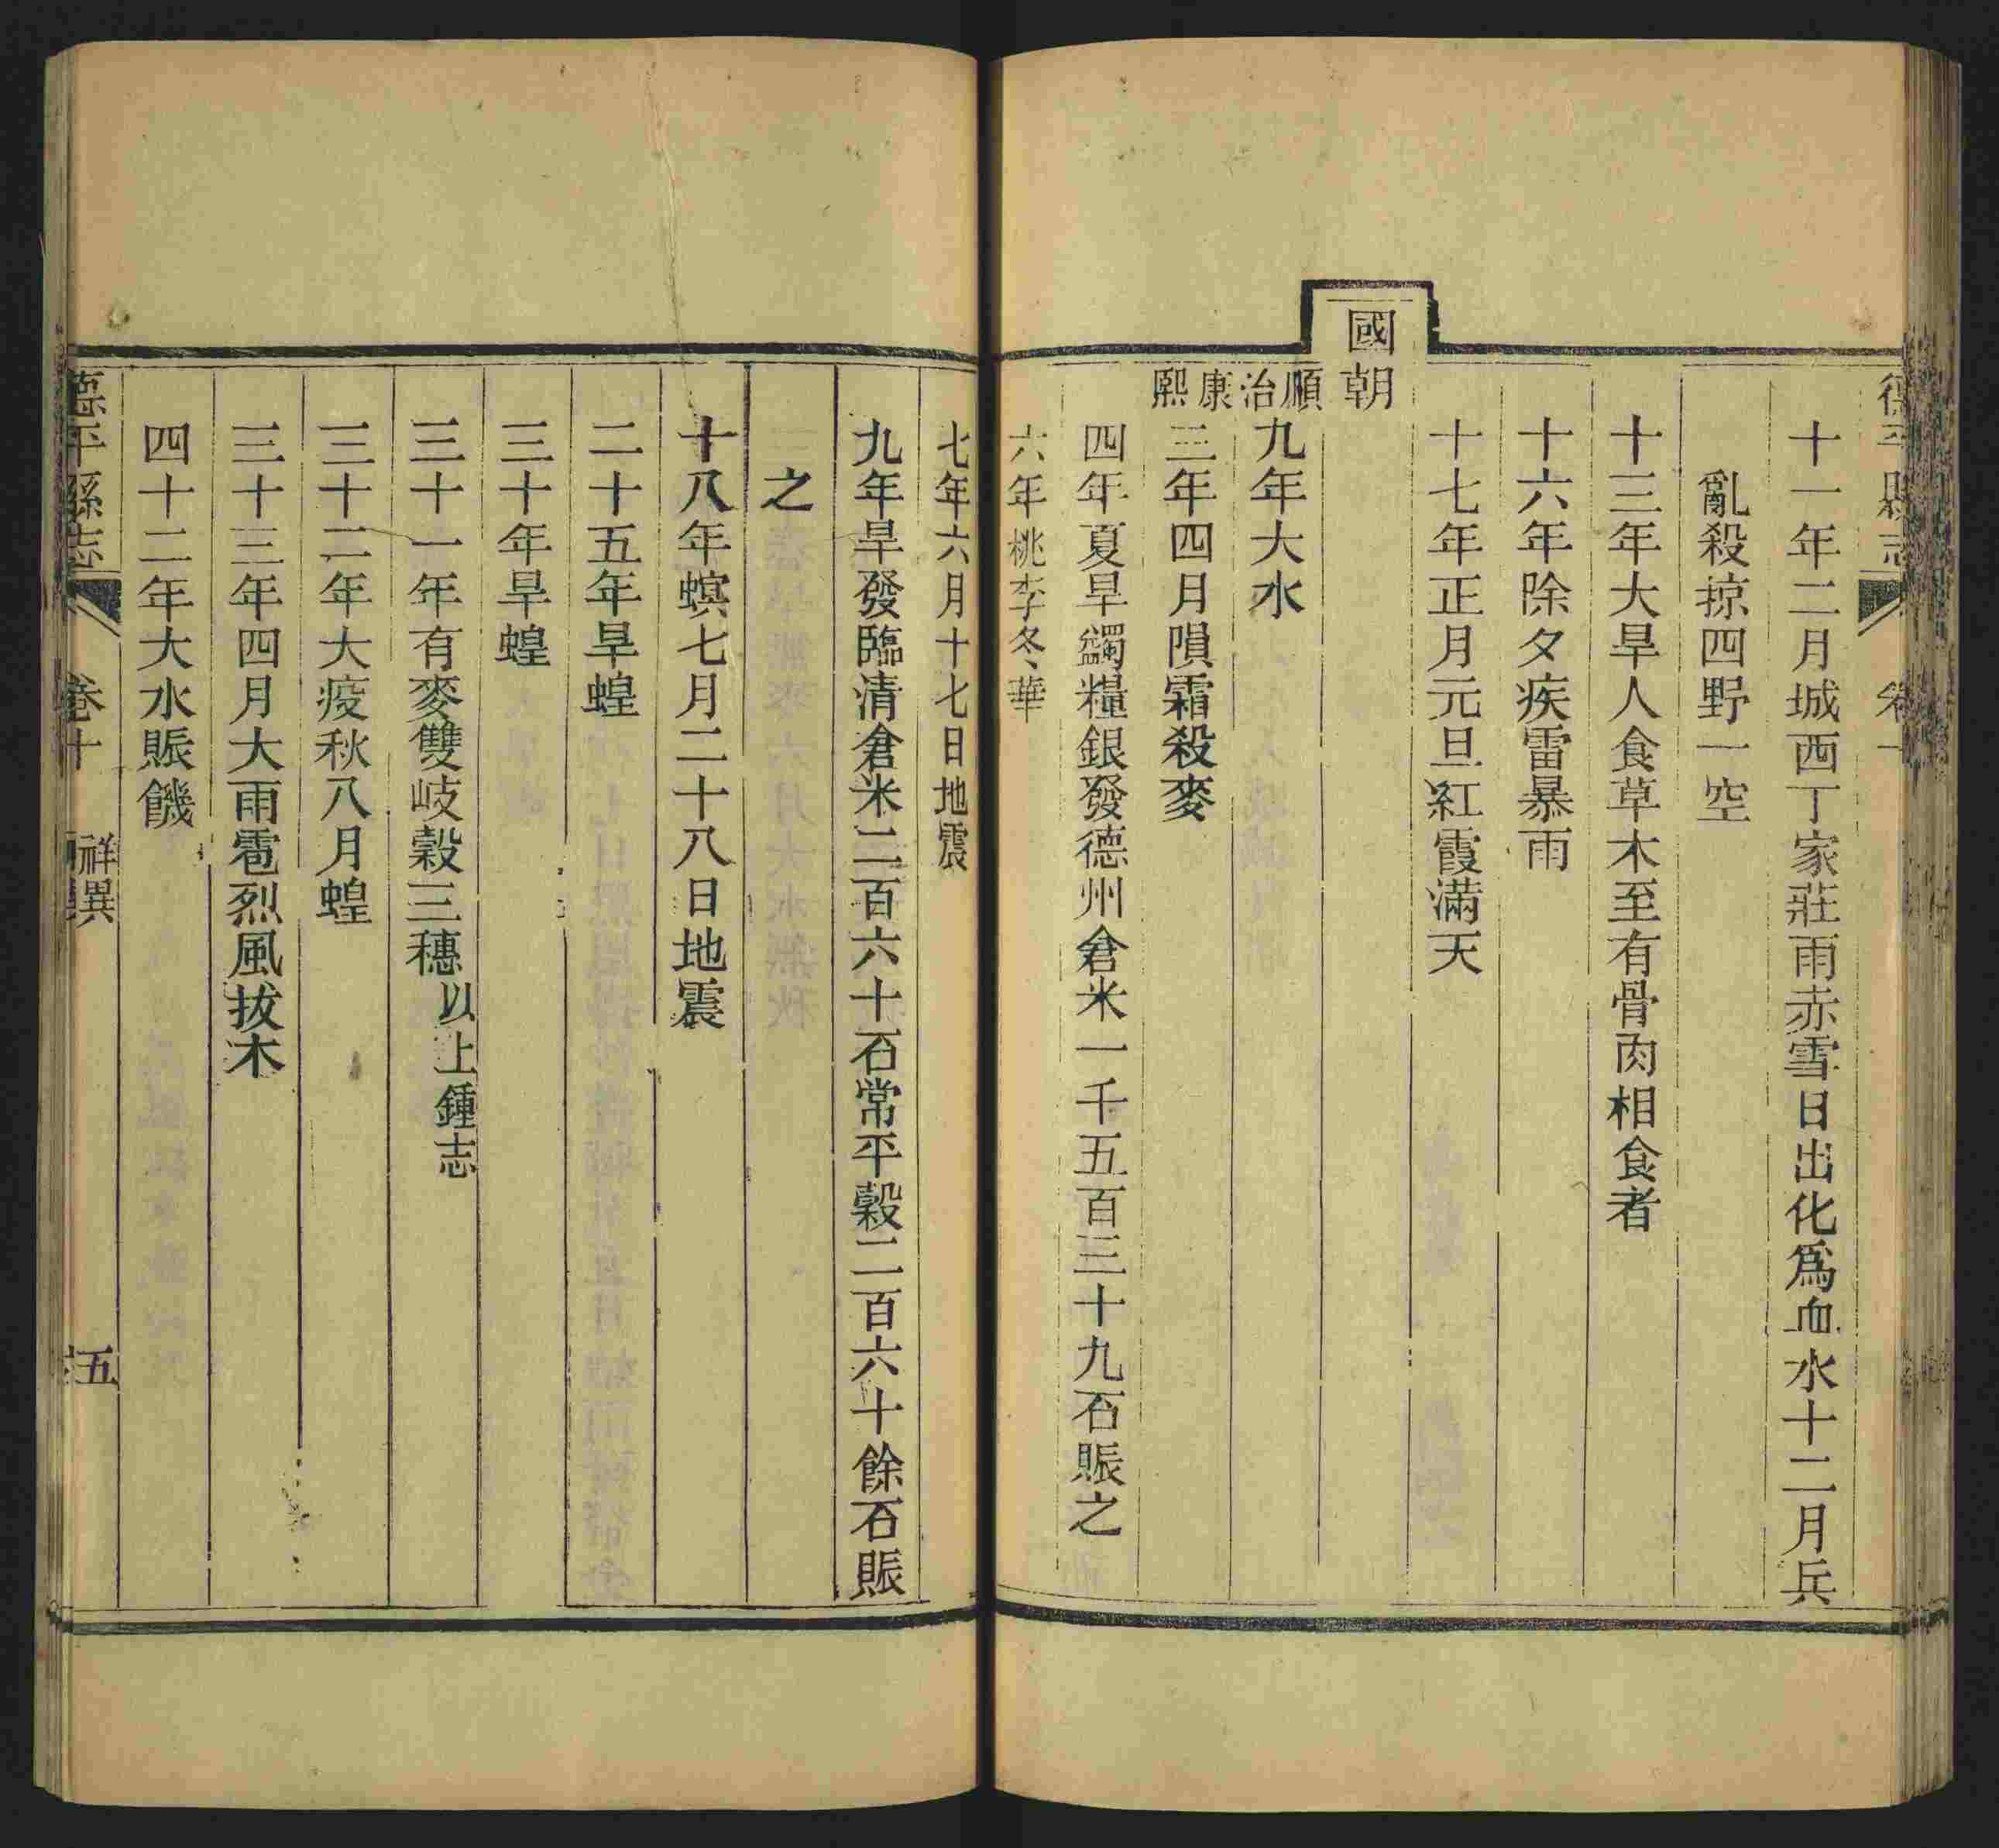 十一年二月城西丁家莊雨赤雪日出化爲血水十二月兵
亂殺掠四野一空
十三年大旱人食草木至有骨肉相食者
十六年除夕疾雷暴雨
十七年正月元旦紅霞滿天
國朝
順治九年大水
康熙三年四月隕霜殺麥
四年夏旱蠲糧銀發德州倉米一千五百三十九石賑之
六年桃李冬華
七年六月十七日地震
九年旱發臨清倉米二百六十石常平穀二百六十餘石賑
之
十八年螟七月二十八日地震
二十五年旱蝗
三十年旱蝗
三十一年有麥雙岐穀三穗以上鍾志
三十二年大疫秋八月蝗
三十三年四月大雨雹烈風拔木
四十二年大水賑饑
德平縣志
卷十
祥異
五